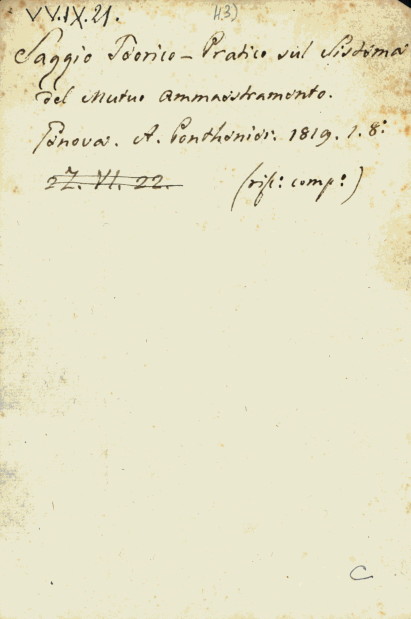 VV.IX.21. 43)
Saggio Teorico-Pratico sul Sistema
del Mutuo Ammaestramento.
Genova. A. Ponthenier. 1819. 1. 8:
27. VI. 22. (rif: comp:)
C